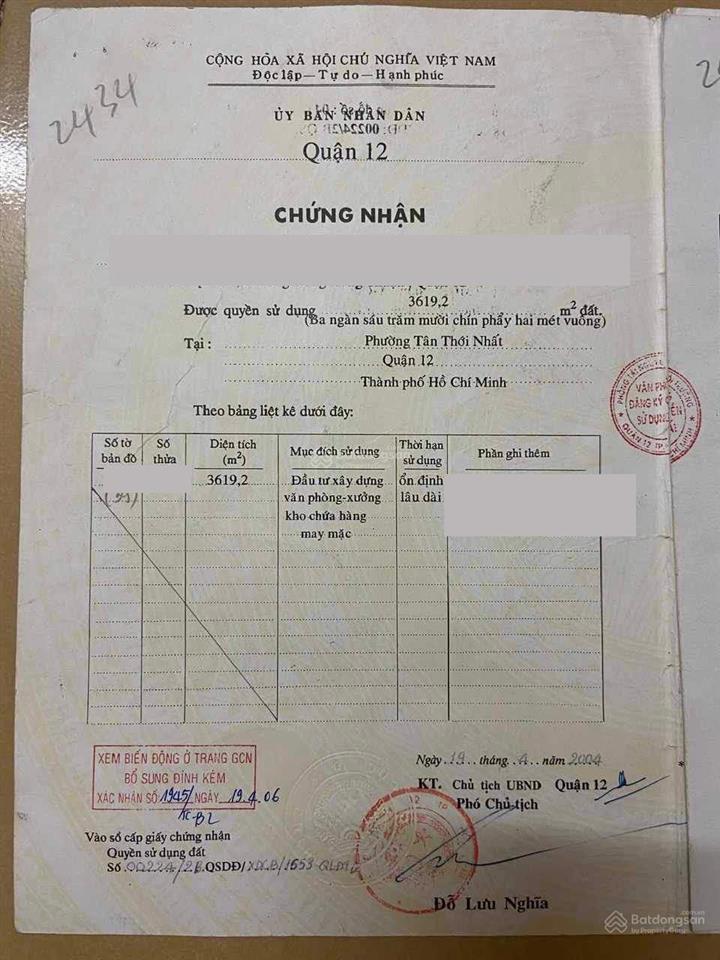 2434
CỘNG HÒA XÃ HỘI CHỦ NGHĨA VIỆT NAM
Độc lập - Tự do - Hạnh phúc
ỦY BAN NHÂN DÂN
Quận 12
CHỨNG NHẬN
Được quyền sử dụng 3619,2 m² đất.
(Ba ngàn sáu trăm mười chín phẩy hai mét vuông)
Tại : Phường Tân Thới Nhất
Quận 12
Thành phố Hồ Chí Minh
Theo bảng liệt kê dưới đây:
Số tờ bản đồ
Số thửa
Diện tích (m²)
Mục đích sử dụng
Thời hạn sử dụng
Phần ghi thêm
3619,2
Đầu tư xây dựng
văn phòng-xưởng
kho chứa hàng
may mặc
ổn định
lâu dài
VĂN PHÒNG
ĐĂNG KÝ QUYỀN
SỬ DỤNG
QUẬN 12
XEM BIẾN ĐỘNG Ở TRANG GCN
BỔ SUNG ĐÍNH KÈM
XÁC NHẬN SỐ 1945/ NGÀY 19.4.06
Ngày 19 tháng 4 năm 2004
KT. Chủ tịch UBND Quận 12
Phó Chủ tịch
Vào sổ cấp giấy chứng nhận
Quyền sử dụng đất
Số 00224/2B QSDĐ/ /1653
Đỗ Lưu Nghĩa
Batdongsan
by PropertyGuru